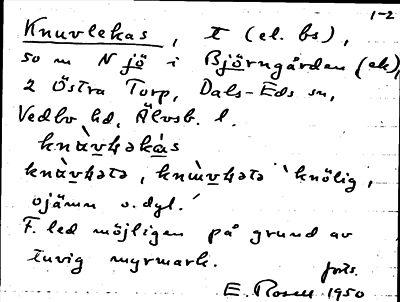 1-2
Knuvlekas, t (el. bs),
so m N jö i Björngården (ek),
2 Östra Torp, Dals-Eds sn,
Vedbo hd, Älvsb. l.
knàvɥəkás
knàvɥətə, knùvɥətə 'knölig,
ojämn o.dyl.'
F. led möjligen på grund av
tuvig myrmark.
forts.
E. Rosell 1950